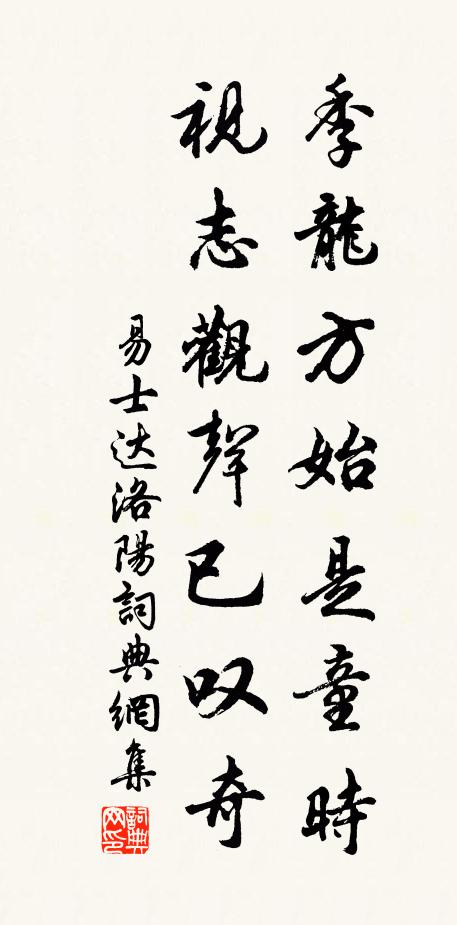 季龍方始是童時
視志觀聲已叹奇
易士达洛陽詞典網集
詞典网印